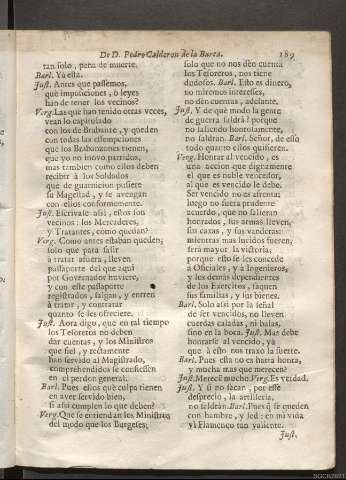 De D. Pedro Calderon de la Barca. 189
tan solo, pena de muerte.
Barl. Ya esta.
Just. Antes que passemos,
què imposiciones, ò leyes
han de tener los vecinos?
Verg. Las que han tenido otras veces,
vean lo capitulado
con los de Brabante, y queden
con todas las essempciones
que los Brabanzones tienen,
que yo no inovo partidos,
mas tambien como ellos deben
recibir à los Soldados
que de guarnicion pusiere
su Magestad, y se avengan
con ellos conformemente.
Just. Escrivase assi, estos son
vecinos: los Mercaderes,
y Tratantes, còmo quedan?
Verg. Como antes estaban queden;
solo que para salir
à tratar afuera, lleven
passaporte del que aqui
por Governador huviere,
y con este passaporte
registrados, salgan, y entren
à tratar, y contratar
quanto se les ofreciere.
Just. Aora digo, que en tal tiempo
los Tesoreros no deben
dar cuentas, y los Ministros
que fiel, y rectamente
han servido al Magistrado,
comprehendidos se confiessen
en el perdon general.
Barl. Pues ellos què culpa tienen
en aver servido bien,
si assi cumplen lo que deben?
Verg. Que se entiendan los Ministros
del modo que los Burgeses;
solo que no nos dèn cuenta
los Tesoreros, nos tiene
dudosos. Barl. Esto es dinero,
no miremos interesses,
no dèn cuentas, adelante.
Just. Y de què modo la gente
de guerra saldrà? porque
no saliendo honrosamente,
no saldràn. Barl. Señor, de esso
todo quanto ellos quisieren.
Verg. Honrar al vencido, es
una accion que dignamente
el que es noble vencedor,
al que es vencido le debe.
Ser vencido no es afrenta;
luego no fuera prudente
acuerdo, que no salieran
honrados, sus armas lleven,
sus caxas, y sus vanderas:
mientras mas lucidos fueren,
serà mayor la victoria;
porque esto se les concede
à Oficiales, y à Ingenieros,
y los demàs dependientes
de los Exercitos, saquen
sus familias, y sus bienes.
Barl. Solo assi por la señal
de ser vencidos, no lleven
cuerdas caladas, ni balas,
sino en la boca. Just. Mas debe
honrarse al vencido, ya
que à esto nos traxo la suerte.
Barl. Pues esta no es harta honra,
y mucha mas que merecen?
Just. Merecè mucho. Verg. Es verdad.
Just. Y si no sacan, por esse
desprecio, la artilleria,
no saldràn. Barl. Pues q̃ se queden
con hambre, y sed: en mi vida
vì Flamenco tan valiente.
Just.